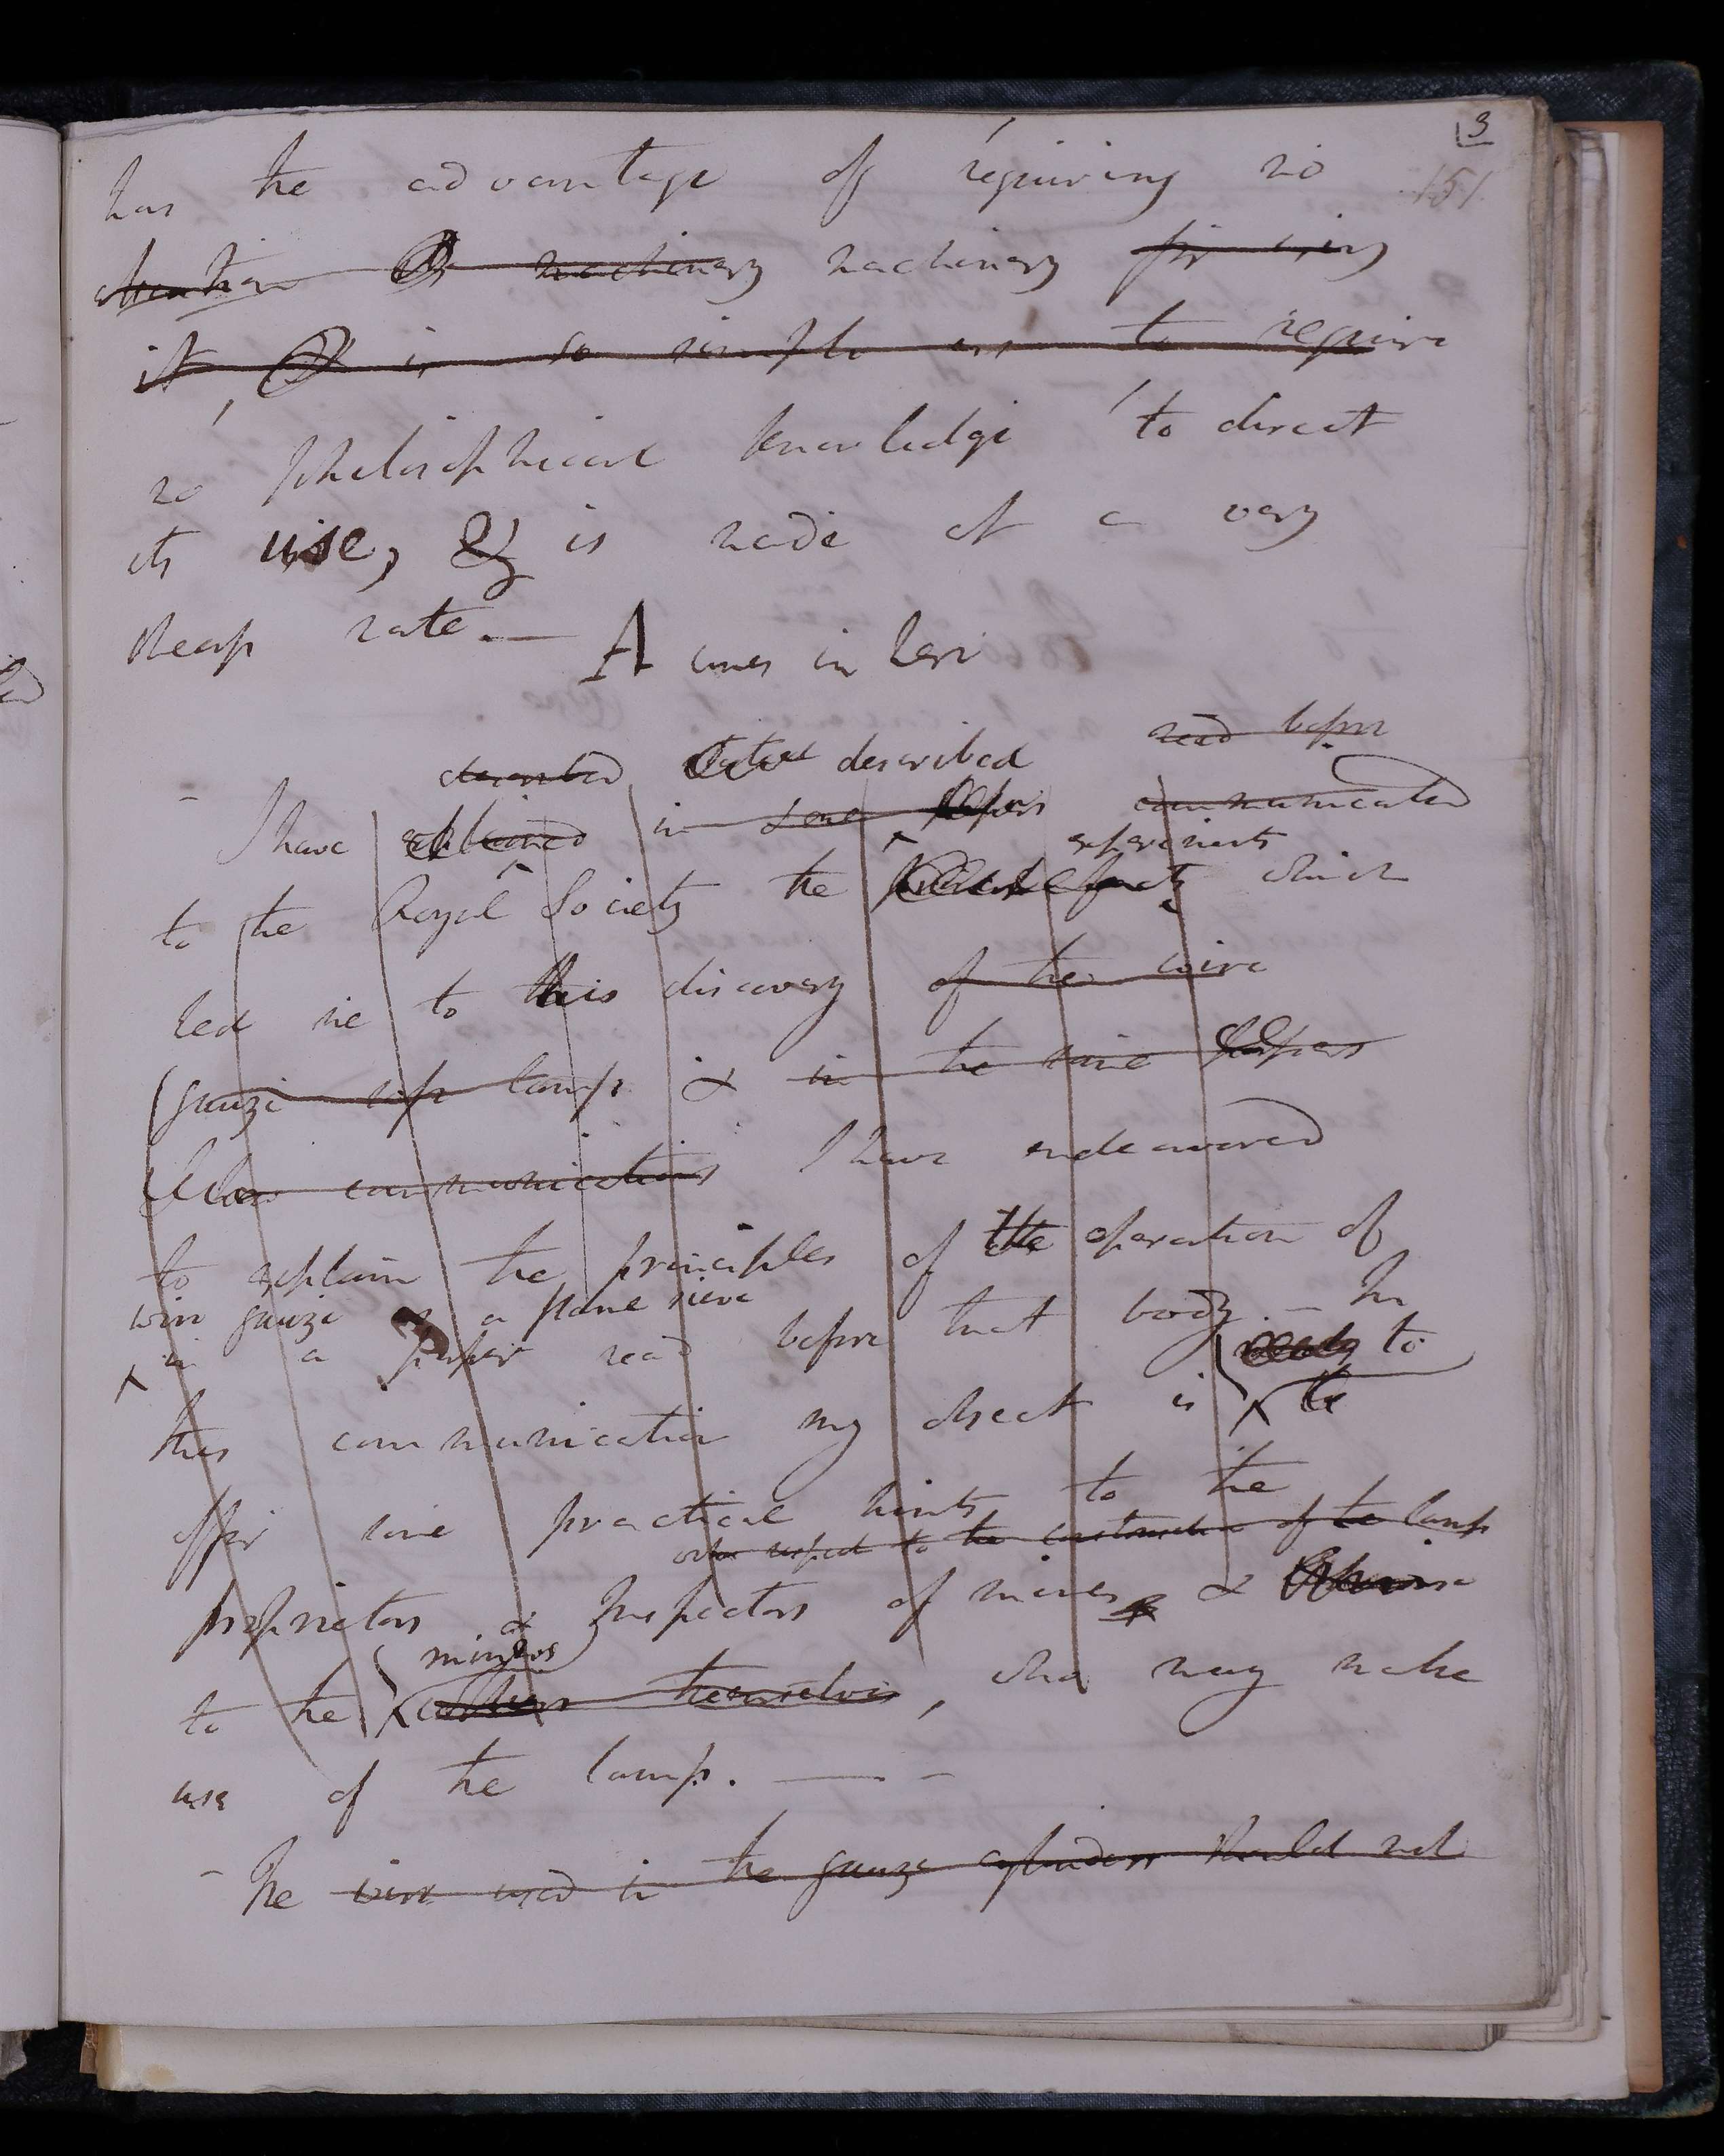 3
151
has the advantage of requiring no
attention machinery machinery for using
it is so simple as to require
no philosophical knowledge to direct
its use, & is made at a very
cheap rate. — A comes in here
read before
described described
- I have explained in some papers communicated
experiments
to the Royal Society the which
led me to this discovery of the wire
gauze safe lamp & in the same papers
communications I have endeavored
to explain the principles of the operation of
wire gauze a plane sieve
in a paper read before that body. — In
ready to
this communication my object is to
offer some practical hints to the
with respect to the construction of the lamp
proprietors & Inspectors of mines &
miners
to the colliers themselves, who may make
use of the lamp. — -
- The wire used in the gauze cylinders should not